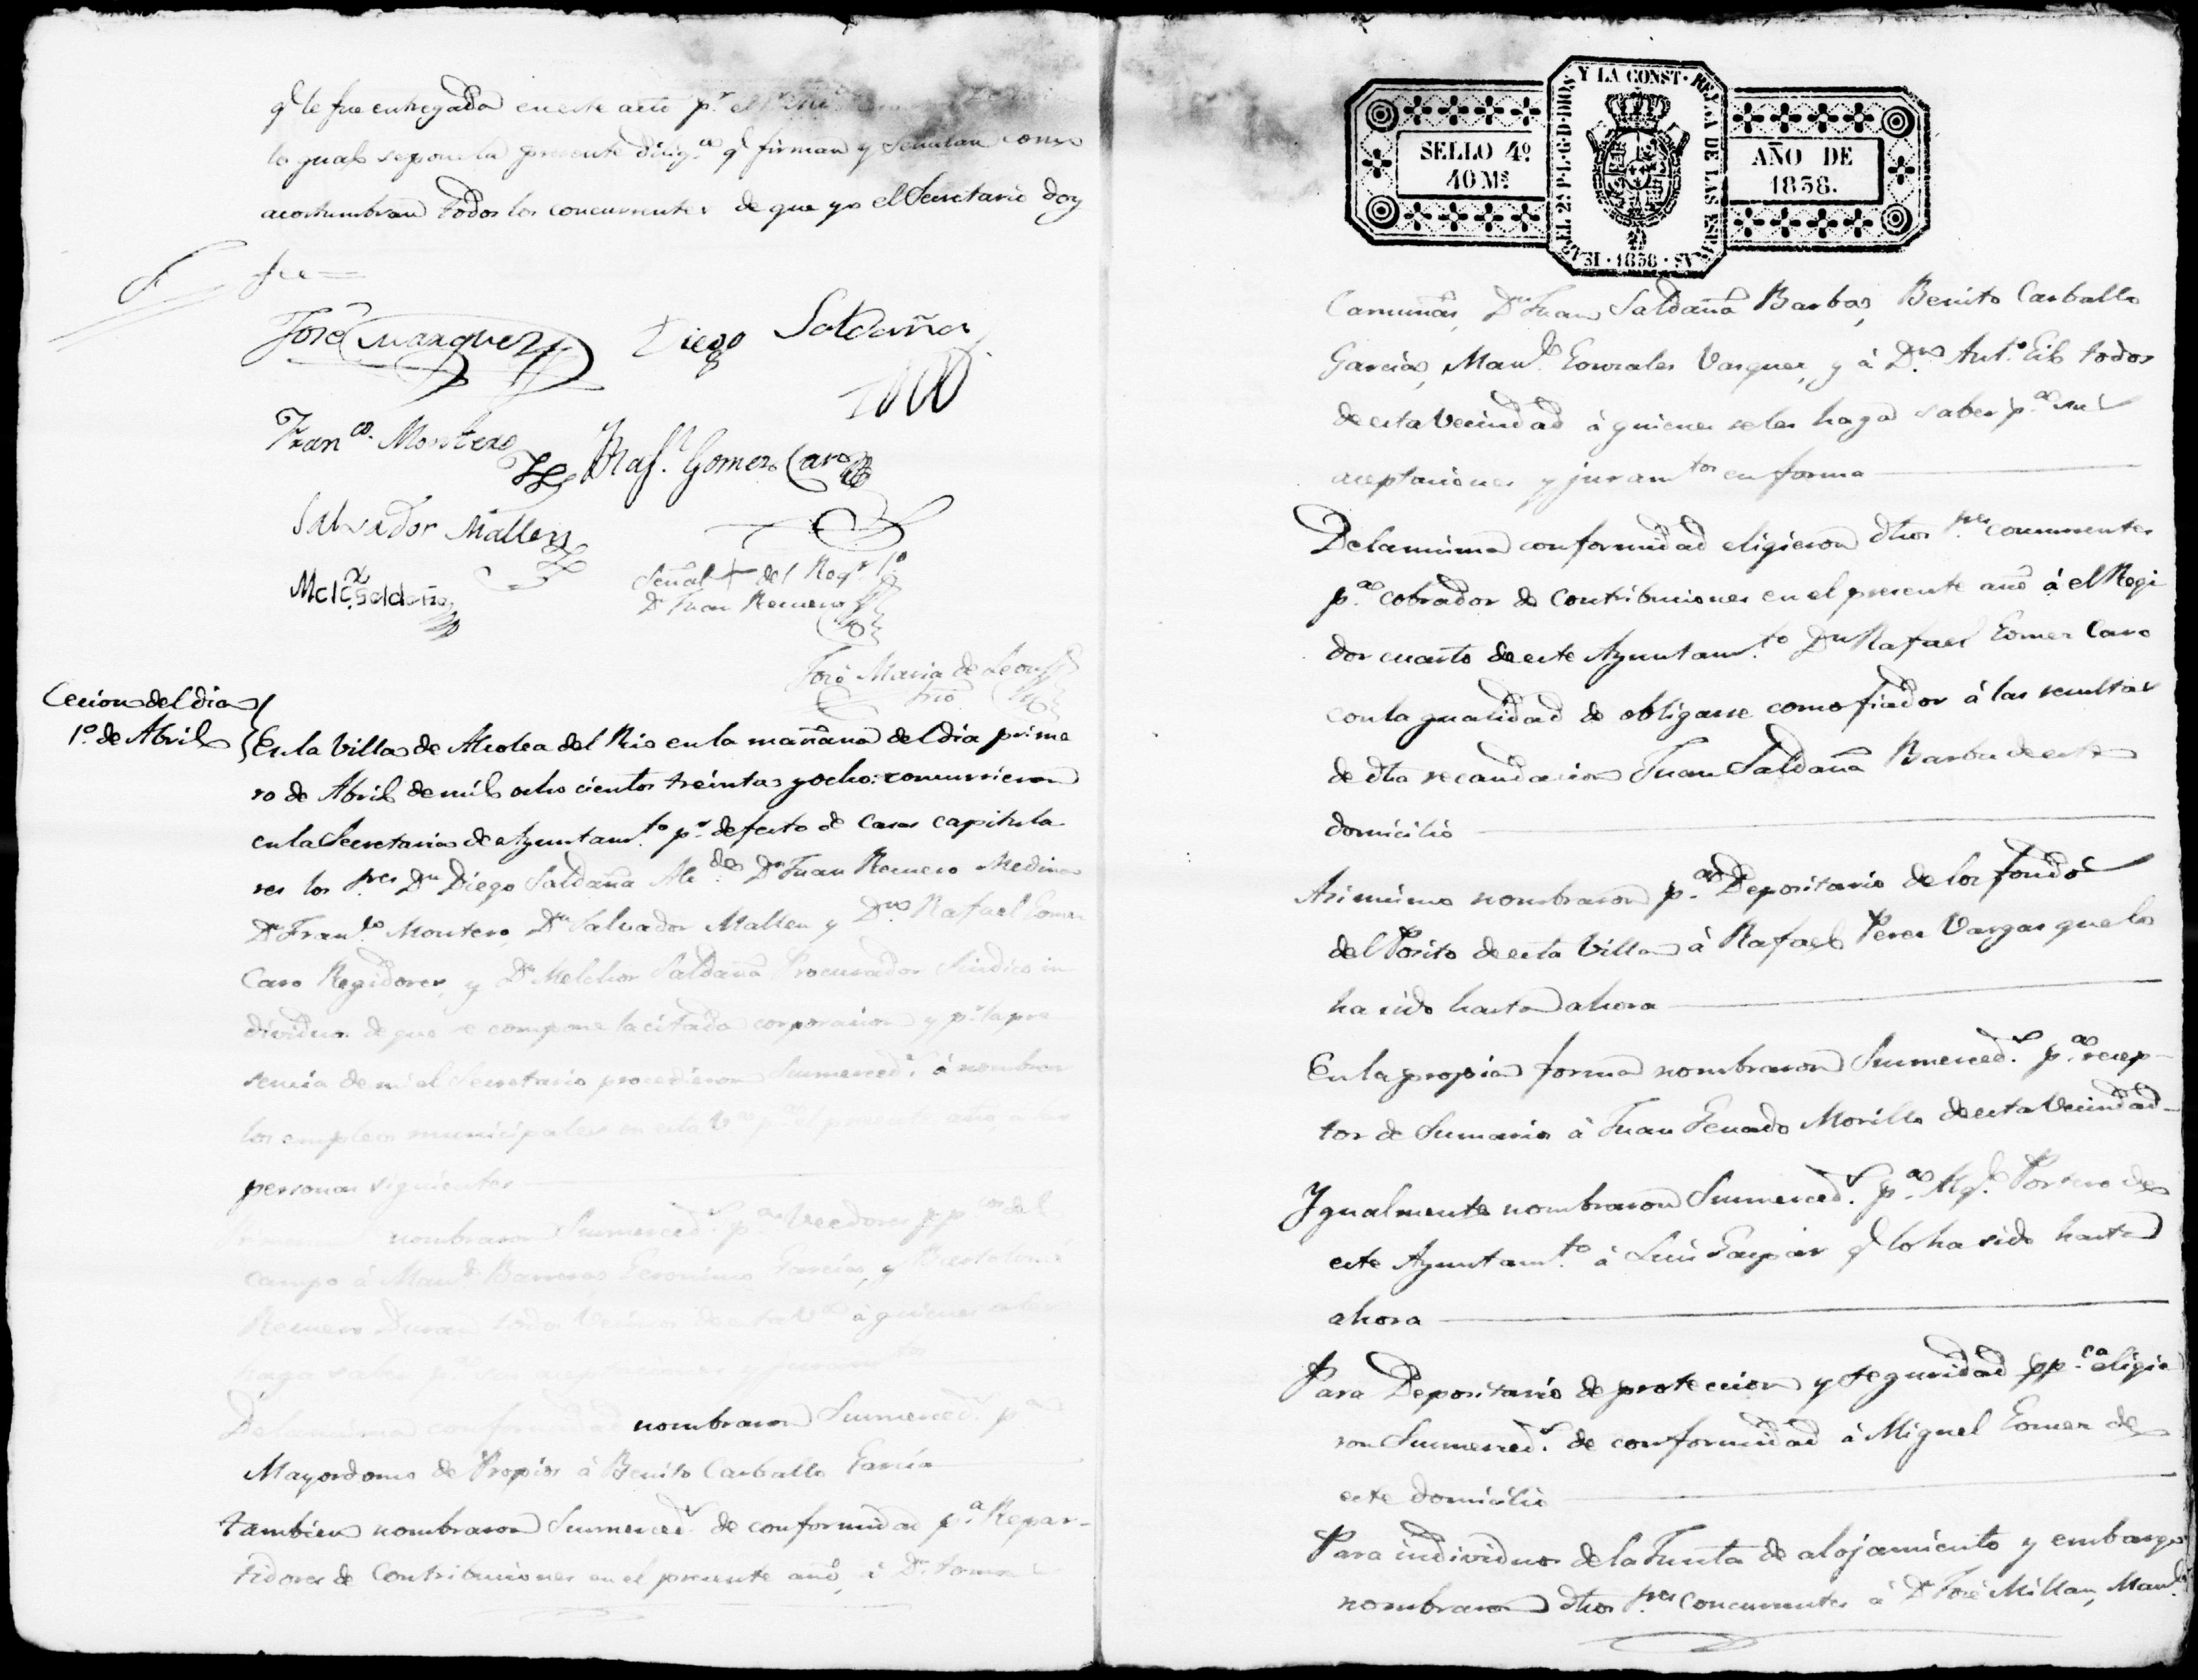 q.e le fue entregada en este acto p.r el
lo qual se pone la presente dilig.a q.e firman y señalan como
acostumbran todos los concurrentes de que yo el Secretario doy
fee=
José Marquez
Diego Saldaña
Fran.co Montero
Raf.l Gomez Caro
Salvador Mallen
Señal + del Reg.r 1.o
D.n Juan Romero
Melc.r Saldaña
José Maria de Leon
Srio
Cecion del dia
1.o de Abril
En la Villa de Alcolea del Rio en la mañana del dia prime
ro de Abril de mil ocho cientos treinta y ocho: concurrieron
en la Secretaria de Ayuntam.to p.r defecto de Casas capitula
res los Sres D.n Diego Saldaña Alc.de D.n Juan Romero Medina
D.n Fran.co Montero, D.n Salvador Mallen y D.n Rafael Gomez
Caro Regidores, y D.n Melchor Saldaña Procurador Sindico in
dividuos de que se compone la citada corporacion y p.r la pre
sencia de mi el Secretario procedieron Sumerced.s á nombrar
los empleos municipales en esta V.a p.a el presente año a las
personas siguientes
nombraron Sumerced.s p.a Veedores pp.cos del
campo á Man.l Barreras, Geronimo Garcia, y Bartolome
Romero Duran todos Vecinos de esta V.a á quienes se les
haga saber p.a sus aceptaciones y juram.tos
De la misma conformidad nombraron Sumerced.s p.a
Mayordomo de Propios á Benito Carballo Garcia
tambien nombraron Sumerced.s de conformidad p.a Repar-
tidores de Contribuciones en el presente año, á D.n Tomas
Y LA CONST. REYNA DE LAS ESPAÑAS. 1838. ISABEL 2ª P.L.G.D.DIOS
SELLO 4º
40 Ms
AÑO DE
1838.
Camuñas, D.n Juan Saldaña Barbas, Benito Carballo
Garcia, Man.l Gonzales Vasquez, y á D.n Ant.o Gil todos
de esta Vecindad á quienes se les haga saber p.a sus
aceptaciones y juram.tos en forma
De la misma conformidad eligieron dhos Sres concurrentes
p.a cobrador de Contribuciones en el presente año á el Regi
dor cuarto de este Ayuntam.to D.n Rafael Gomez Caro
con la qualidad de obligarse como fiador á las resultas
de dha recaudacion Juan Saldaña Barba de este
domicilio
Asimismo nombraron p.a Depositario de los fondos
del Posito de esta Villa á Rafael Perez Vargas que lo
ha sido hasta ahora
En la propia forma nombraron Sumerced.s p.a recep-
tor de Sumarios á Juan Morillo de esta Vecindad
Ygualmente nombraron Sumerced.s p.a Portero de
este Ayuntam.to á Luis Gaspar q.e lo ha sido hasta
ahora
Para Depositario de proteccion y seguridad pp.ca eligie
ron Sumerced.s de conformidad á Miguel Gomez de
este domicilio
Para individuos de la Junta de alojamiento y embargo
nombraron dhos Sres concurrentes á D.n José Millan, Man.l